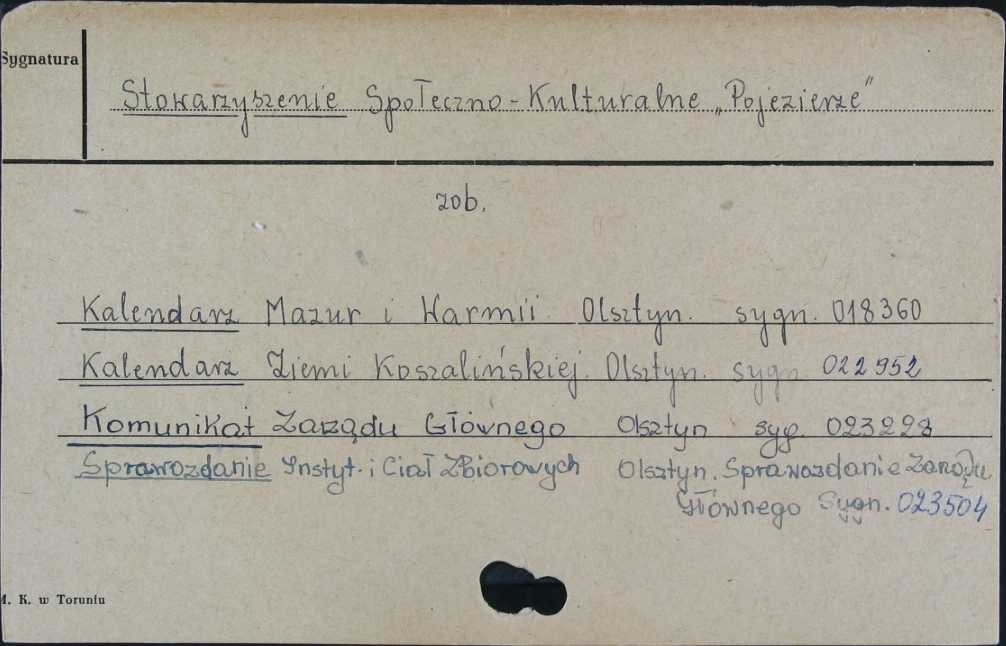 Sygnatura
Stowarzyszenie Społeczno-Kulturalne „Pojezierze"
zob.
Kalendarz Mazur i Warmii. Olsztyn. sygn. 018360
Kalendarz Ziemi Koszalińskiej. Olsztyn. sygn 022952
Komunikat Zarządu Głównego Olsztyn syg. 023298
Sprawozdanie Instyt. i Ciał Zbiorowych Olsztyn. Sprawozdanie Zarządu
Głównego Sygn. 023504
M. K. w Toruniu